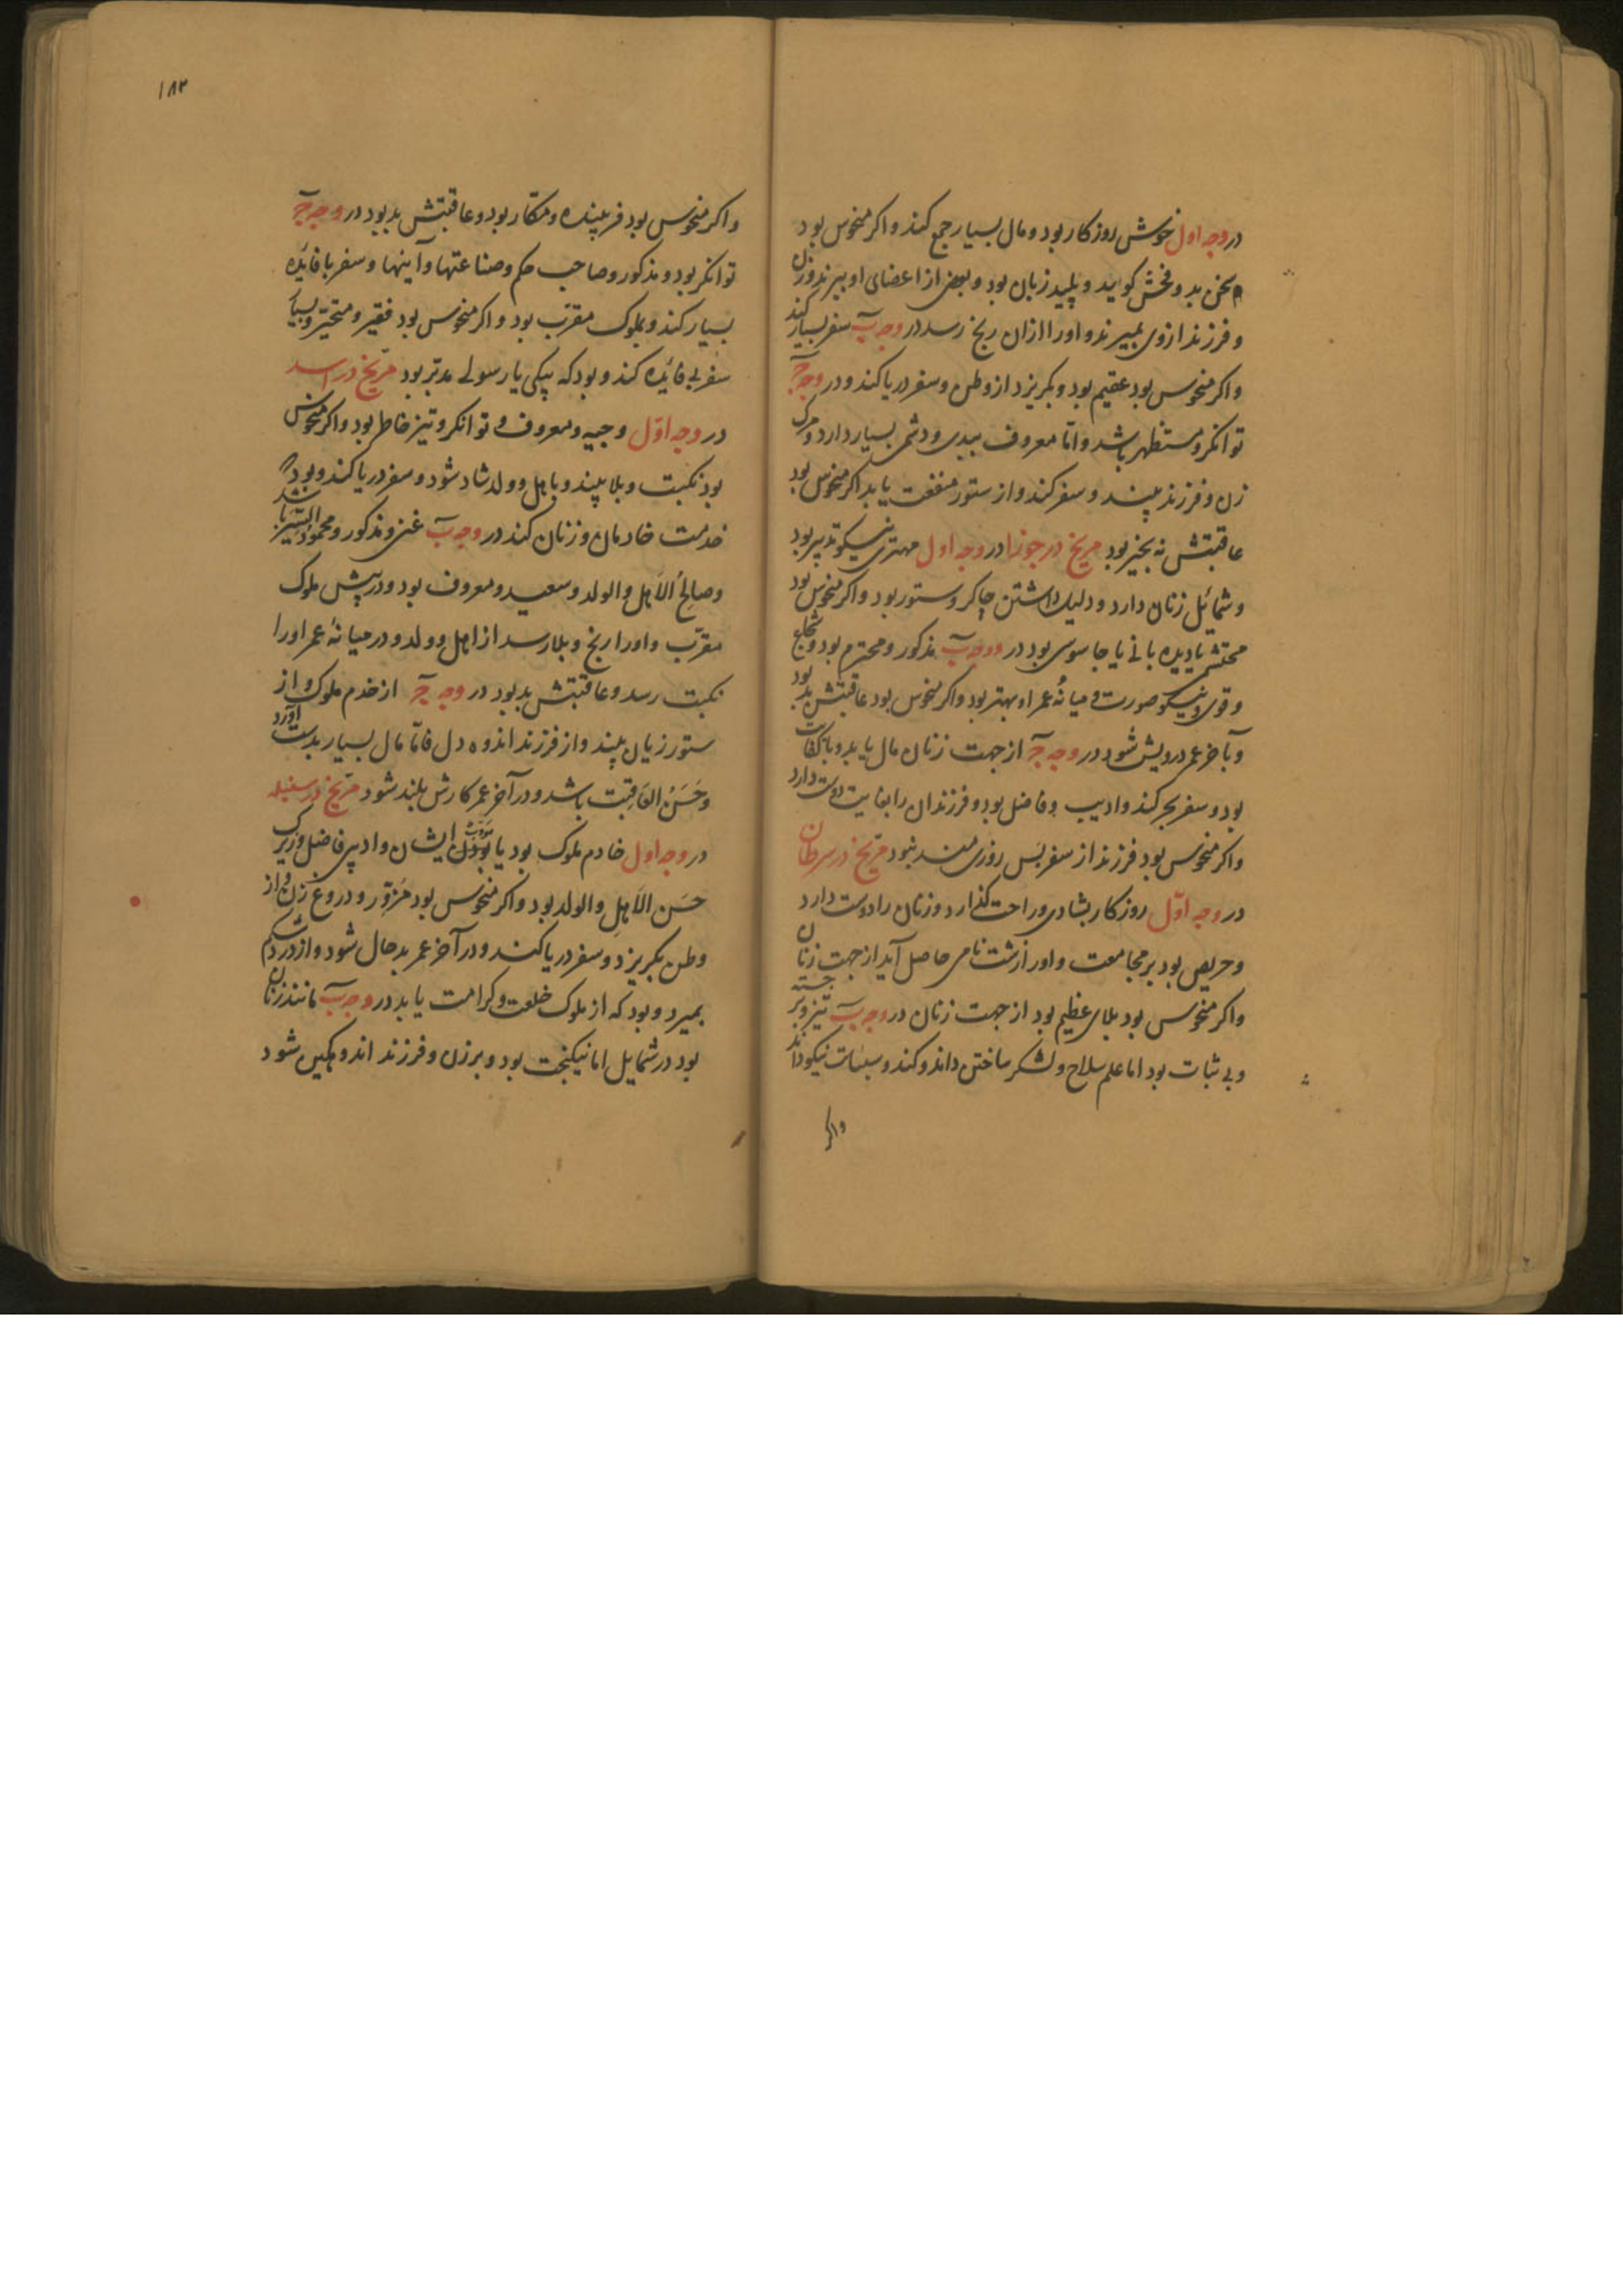 در وجه اول خوش روزکار بود و مال بسیار جمع کند و اکر منحوس بود
سخن بد و فحش کوید و پلید زبان بود و بعضی از اعضای او ببرند و زن
و فرزند از وی بمیرند و اورا ازان رنج رسد در وجه ب سفر بسیار کند
واکر منحوس بود عقیم بود و بکریزد از وطن و سفر دریا کند و در وجه ج
توانکر و مستظهر باشد و امّا معروف ببدی و دشمن بسیار دارد و مرک
زن و فرزند بیند و سفر کند و از ستور منفعت یابد اکر منحوس بود
عاقبتش نه بخیر بود مریخ در جوزا در وجه اول مهتری نیکو تدبیر بود
و شمائل زنان دارد و دلیل داشتن چاکر و ستور بود و اکر منحوس بود
محتشم یا دیده بانی یا جاسوسی بود در ووجه ب مذکور و محترم بود و شجاع
و قوی و نیکو صورت و میانهٔ عمر او بهتر بود واکر منحوس بود عاقبتش بد بود
و بآخر عمر درویش شود در وجه ج از جهت زنان مال یابد و با
بود و سفر بحر کند و ادیب و فاضل بود و فرزندان را بغایت دوست دارد
واکر منحوس بود فرزند از سفر بس روزی مند نبود مریخ در سرطان
در وجه اوّل روزکار بشادی و راحت کذارد و زنان را دوست دارد
و حریص بود بر مجامعت و اورا زشت نامی حاصل آید از جهت زنان
واکر منحوس بود بلای عظیم بود از جهت زنان در وجه ب تیز و برجسته
و بی ثبات بود اما علم سلاح و لشکر ساختن داند و کند و نیکو داند
واکر
۱۸۳
واکر منحوس بود فریبنده و مکّار بود و عاقبتش بد بود در وجه ج
توانکر بود و مذکور و صاحب حکم و صناعتها و آینها و سفر با فایده
بسیار کند و بملوک مقرّب بود و اکر منحوس بود فقیر و متحیّر و بسیار
سفر بی فائده کند و بود که پیکی یا رسولی مدبّر بود مریّخ در اسد
در وجه اوّل وجیه و معروف و توانکر و تیز خاطر بود و اکر منحوس
بود نکبت و بلا بیند و باهل و ولد شاد شود و سفر دریا کند و بود که
خدمت خادمان و زنان کند در وجه ب غنی و مذکور و محمود السّیر باشد
و صالح الاَهل و الولد و سعید و معروف بود و در پیش ملوک
مقرّب و اورا رنج و بلا رسد از اهل و ولد و در میانهٔ عمر اورا
نکبت رسد و عاقبتش بد بود در وجه ج از خدم ملوک و از
ستور زیان بیند و از فرزند اندوه دل فامّا مال بسیار بدست آورد
و حَسَن العَاقبت باشد و در آخر عمر کارش بلند شود مریّخ در سنبله
در وجه اول خادم ملوک بود یا مؤدّب ایشان و ادیبی فاضل و زیرک
حَسَن الاَهلِ و الولد بود و اکر منحوس بود مزوّر و دروغ زن و از
وطن بکریزد و سفر دریا کند و در آخر عمر بد حال شود و از درد شکم
بمیرد و بود که از ملوک خلعت و کرامت یابد در وجه ب مانند زنان
بود در شمایل اما نیکبخت بود و بر زن و فرزند اندوهکین شود